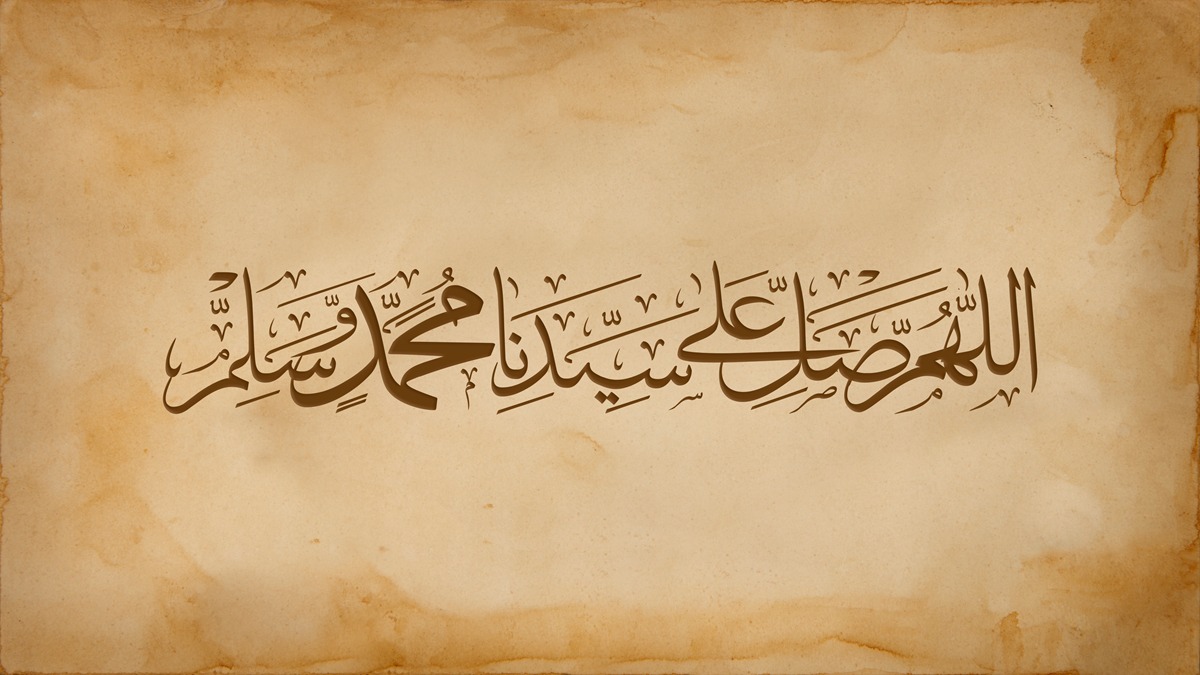 اللَّهُمَّ صَلِّ عَلَى سَيِّدِنَا مُحَمَّدٍ وَسَلِّمْ